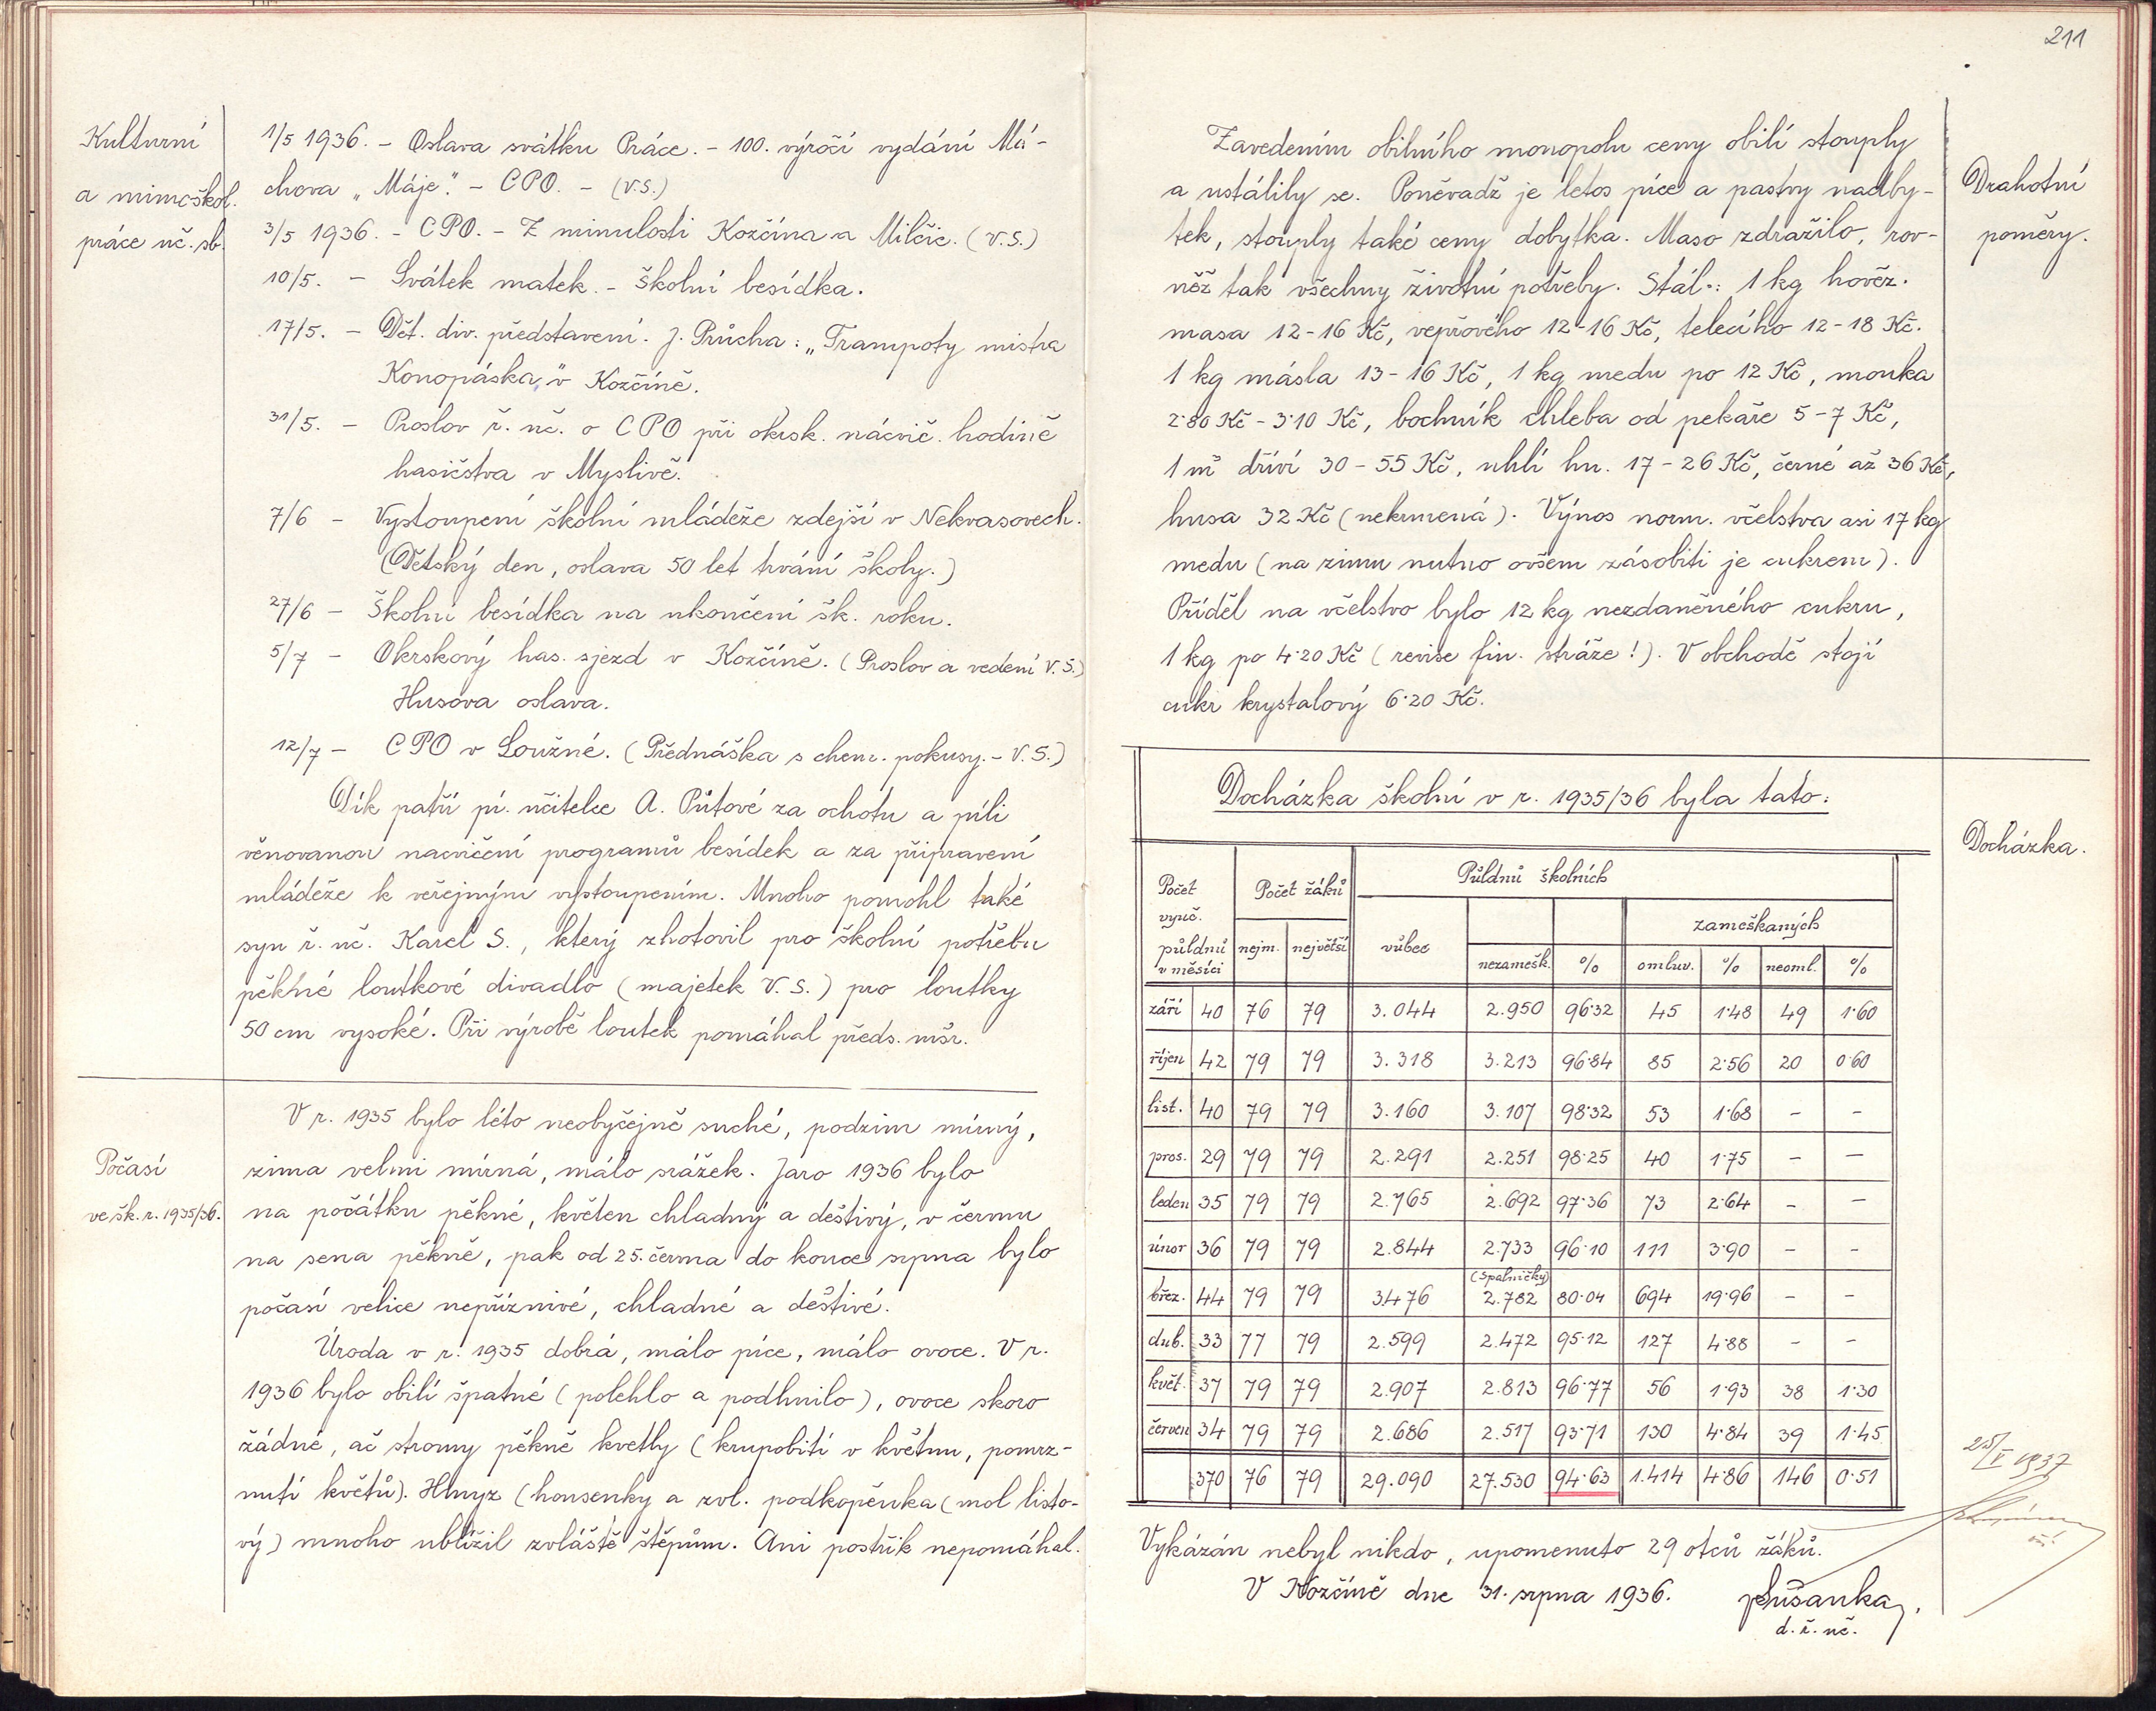 Kulturní
a mimoškol.
práce uč. sb.
1/5 1936. – Oslava svátku Práce. – 100. výročí vydání Má-
chova „Máje". – CPO. – (V.S.)
3/5 1936. – CPO. – Z minulosti Kozčína a Milčic. (V.S.)
10/5. – Svátek matek. – Školní besídka.
17/5. – Dět. div. představení. J. Průcha: „Trampoty mistra
Konopáska" v Kozčíně.
31/5. – Proslov ř. uč. o CPO při okrsk. nácvič. hodině
hasičstva v Myslivě.
7/6 – Vystoupení školní mládeže zdejší v Nekvasovech.
(Dětský den, oslava 50 let trvání školy.)
27/6 – Školní besídka na ukončení šk. roku.
5/7 – Okrskový has. sjezd v Kozčíně. (Proslov a vedení V.S.)
Husova oslava.
12/7 – CPO v Loužné. (Přednáška s chem. pokusy. – V.S.)
Dík patří pí. učitelce A. Půtové za ochotu a píli
věnovanou nacvičení programů besídek a za připravení
mládeže k veřejným vystoupením. Mnoho pomohl také
syn ř. uč. Karel S., který zhotovil pro školní potřebu
pěkné loutkové divadlo (majetek V.S.) pro loutky
50 cm vysoké. Při výrobě loutek pomáhal předs. mšr.
Počasí
ve šk. r. 1935/36.
V r. 1935 bylo léto neobyčejně suché, podzim mírný,
zima velmi mírná, málo srážek. Jaro 1936 bylo
na počátku pěkné, květen chladný a deštivý, v červnu
na sena pěkně, pak od 25. června do konce srpna bylo
počasí velice nepříznivé, chladné a deštivé.
Úroda v r. 1935 dobrá, málo píce, málo ovoce. V r.
1936 bylo obilí špatné (polehlo a podhnilo), ovoce skoro
žádné, ač stromy pěkně kvetly (krupobití v květnu, pomrz-
nutí květů). Hmyz (housenky a zvl. podkopěnka (mol listo-
vý) mnoho ublížil zvláště štěpům. Ani postřik nepomáhal.
211
Zavedením obilního monopolu ceny obilí stouply
a ustálily se. Poněvadž je letos píce a pastvy nadby-
tek, stouply také ceny dobytka. Maso zdražilo, rov-
něž tak všechny životní potřeby. Stál.: 1 kg hověz.
masa 12-16 Kč, vepřového 12-16 Kč, telecího 12-18 Kč.
1 kg másla 13-16 Kč, 1 kg medu po 12 Kč, mouka
2·80 Kč - 3·10 Kč, bochník chleba od pekaře 5-7 Kč,
1 m³ dříví 30-55 Kč, uhlí hn. 17-26 Kč, černé až 36 Kč,
husa 32 Kč (nekrmená). Výnos norm. včelstva asi 17 kg
medu (na zimu nutno ovšem zásobiti je cukrem).
Příděl na včelstvo bylo 12 kg nezdaněného cukru,
1 kg po 4·20 Kč (revise fin. stráže!). V obchodě stojí
cukr krystalový 6·20 Kč.
Drahotní
poměry.
Docházka školní v r. 1935/36 byla tato:
Docházka.
Počet vyuč. půldnů v měsíci | Počet žáků | Půldnů školních
nejm. | největší | vůbec | nezamešk. | % | zameškaných
omluv. | % | neoml. | %
září | 40 | 76 | 79 | 3.044 | 2.950 | 96·32 | 45 | 1·48 | 49 | 1·60
říjen | 42 | 79 | 79 | 3.318 | 3.213 | 96·84 | 85 | 2·56 | 20 | 0·60
list. | 40 | 79 | 79 | 3.160 | 3.107 | 98·32 | 53 | 1·68 | – | –
pros. | 29 | 79 | 79 | 2.291 | 2.251 | 98·25 | 40 | 1·75 | – | –
leden | 35 | 79 | 79 | 2.765 | 2.692 | 97·36 | 73 | 2·64 | – | –
únor | 36 | 79 | 79 | 2.844 | 2.733 | 96·10 | 111 | 3·90 | – | –
(Spalničky)
břez. | 44 | 79 | 79 | 3476 | 2.782 | 80·04 | 694 | 19·96 | – | –
dub. | 33 | 77 | 79 | 2.599 | 2.472 | 95·12 | 127 | 4·88 | – | –
květ. | 37 | 79 | 79 | 2.907 | 2.813 | 96·77 | 56 | 1·93 | 38 | 1·30
červen | 34 | 79 | 79 | 2.686 | 2.517 | 93·71 | 130 | 4·84 | 39 | 1·45
370 | 76 | 79 | 29.090 | 27.530 | 94·63 | 1.414 | 4·86 | 146 | 0·51
Vykázán nebyl nikdo, upomenuto 29 otců žáků.
V Kozčíně dne 31. srpna 1936. Sušanka,
d. ř. uč.
25/V 1937